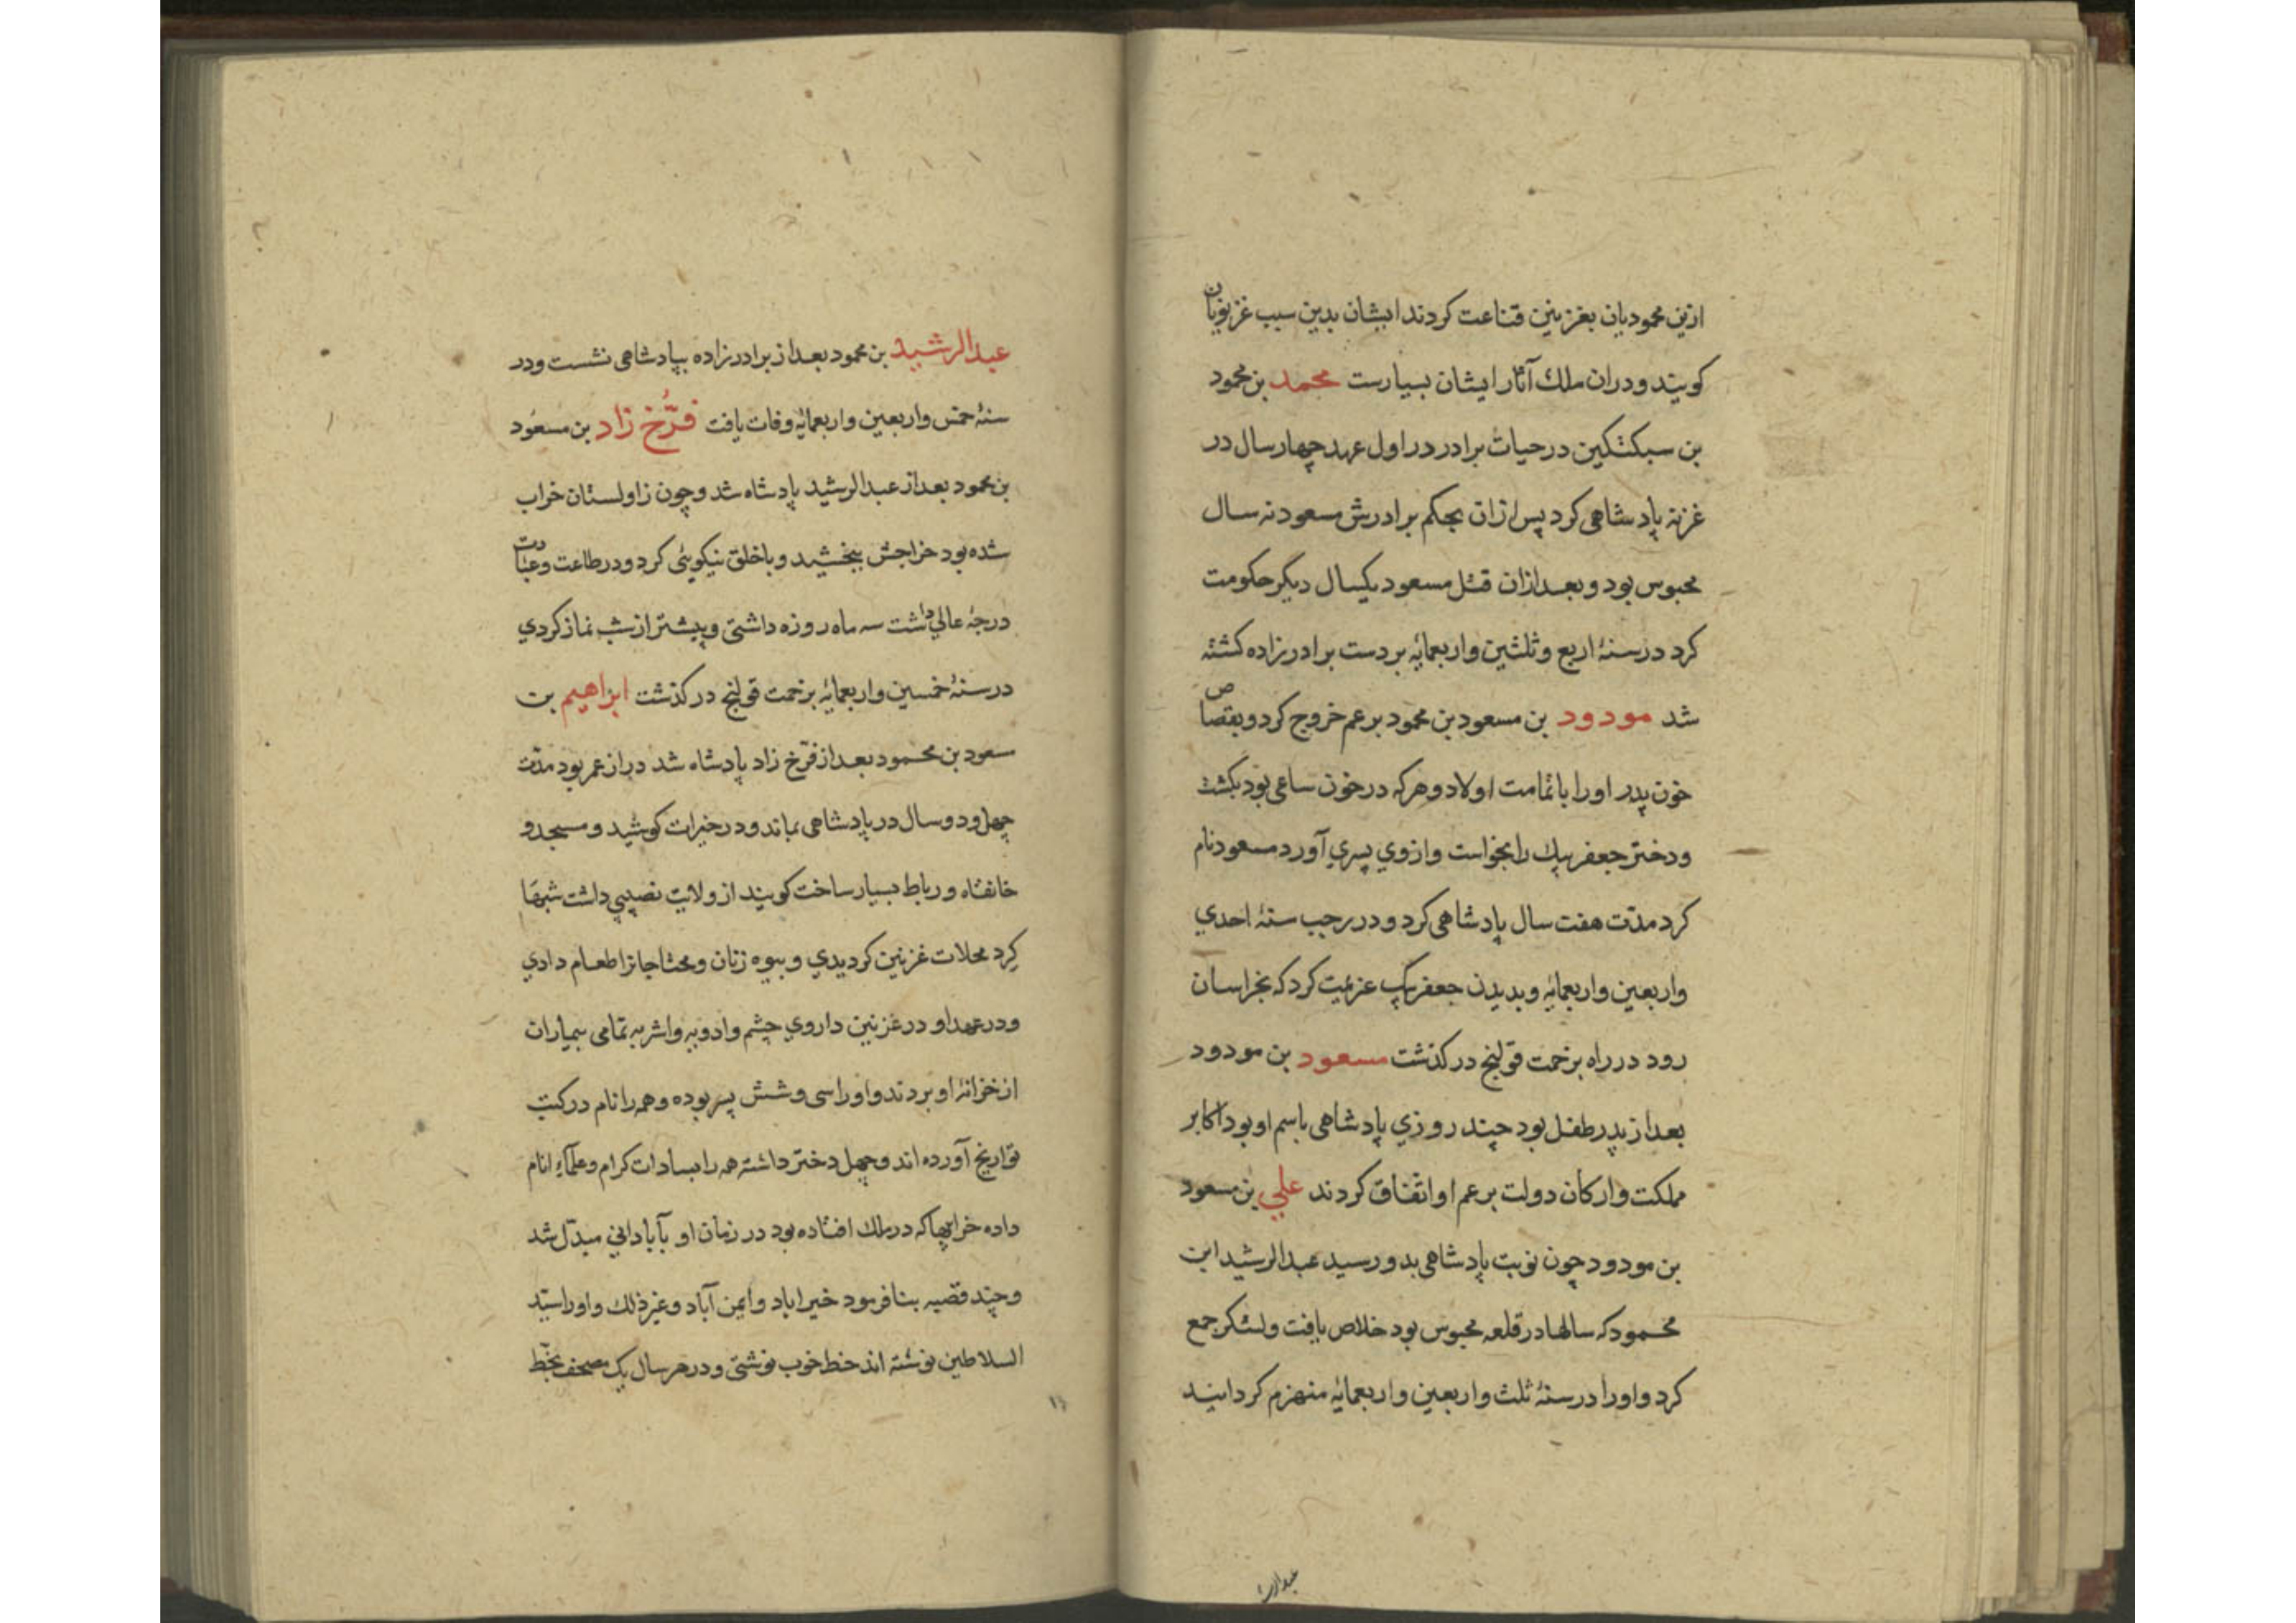 ازین محمودیان بغزنین قناعت کردند ایشان بدین سبب غزنویان
کویند و دران ملك آثار ایشان بسیارست محمد بن محمود
بن سبکتکین در حیات برادر در اول عهد چهار سال در
غزنه پادشاهی کرد پس ازان بحکم برادرش مسعود نه سال
محبوس بود و بعد ازان قتل مسعود یکسال دیگر حکومت
کرد در سنهٔ اربع و ثلثین و اربعمایه بر دست برادرزاده کشته
شد مودود بن مسعود بن محمود بر عم خروج کرد و بقصاص
خون پدر او را با تمامت اولاد و هر که در خون ساعی بود بکشت
و دختر جعفر بیك را بخواست و ازوي پسري آورد مسعود نام
کرد مدّت هفت سال پادشاهی کرد و در رجب سنهٔ احدي
و اربعین و اربعمایه و بدیدن جعفر بیك عزیمت کرد که بخراسان
رود در راه بزحمت قولنج در کذشت مسعود بن مودود
بعد از پدر طفل بود چند روزي پادشاهی باسم او بود اکابر
مملکت و ارکان دولت بر عم او اتفاق کردند علي بن مسعود
بن مودود چون نوبت پادشاهی بدو رسید عبدالرشید ابن
محمود که سالها در قلعه محبوس بود خلاص یافت و لشکر جمع
کرد و او را در سنهٔ ثلث و اربعین و اربعمایه منهزم کردانید
عبدالرش
عبدالرشید بن محمود بعد از برادرزاده بپادشاهی نشست و در
سنهٔ خمس و اربعین و اربعمایه وفات یافت فرّخ زاد بن مسعود
بن محمود بعد از عبدالرشید پادشاه شد و چون زاولستان خراب
شده بود خراجش ببخشید و با خلق نیکویی کرد و در طاعت و عبادت
درجهٔ عالي داشت سه ماه روزه داشتی و پیشتر از شب نماز کردي
در سنهٔ خمسین و اربعمایه بزحمت قولنج در کذشت ابراهیم بن
سعود بن محمود بعد از فرّخ زاد پادشاه شد دراز عمر بود مدّت
چهل و دو سال در پادشاهی بماند و در خیرات کوشید و مسجد و
خانقاه و رباط بسیار ساخت کویند از ولایت نصیبي داشت شبها
کرد محلات غزنین کردیدي و بیوه زنان و محتاجانرا طعام دادي
و در عهد او در غزنین داروي چشم و ادویه و اشربه تمامی بیماران
از خزانهٔ او بردند و او را سی و شش پسر بوده و همه را نام در کتب
تواریخ آورده اند و چهل دختر داشته همه را بسادات کرام و علمآء انام
داده خرابیها که در ملك افتاده بود در زمان او بآباداني مبدّل شد
و چند قصبه بنا فرمود خیراباد و ایمن آباد و غیر ذلك و او را سیّد
السلاطین نوشته اند خط خوب نوشتی و در هر سال یک مصحف بخّط